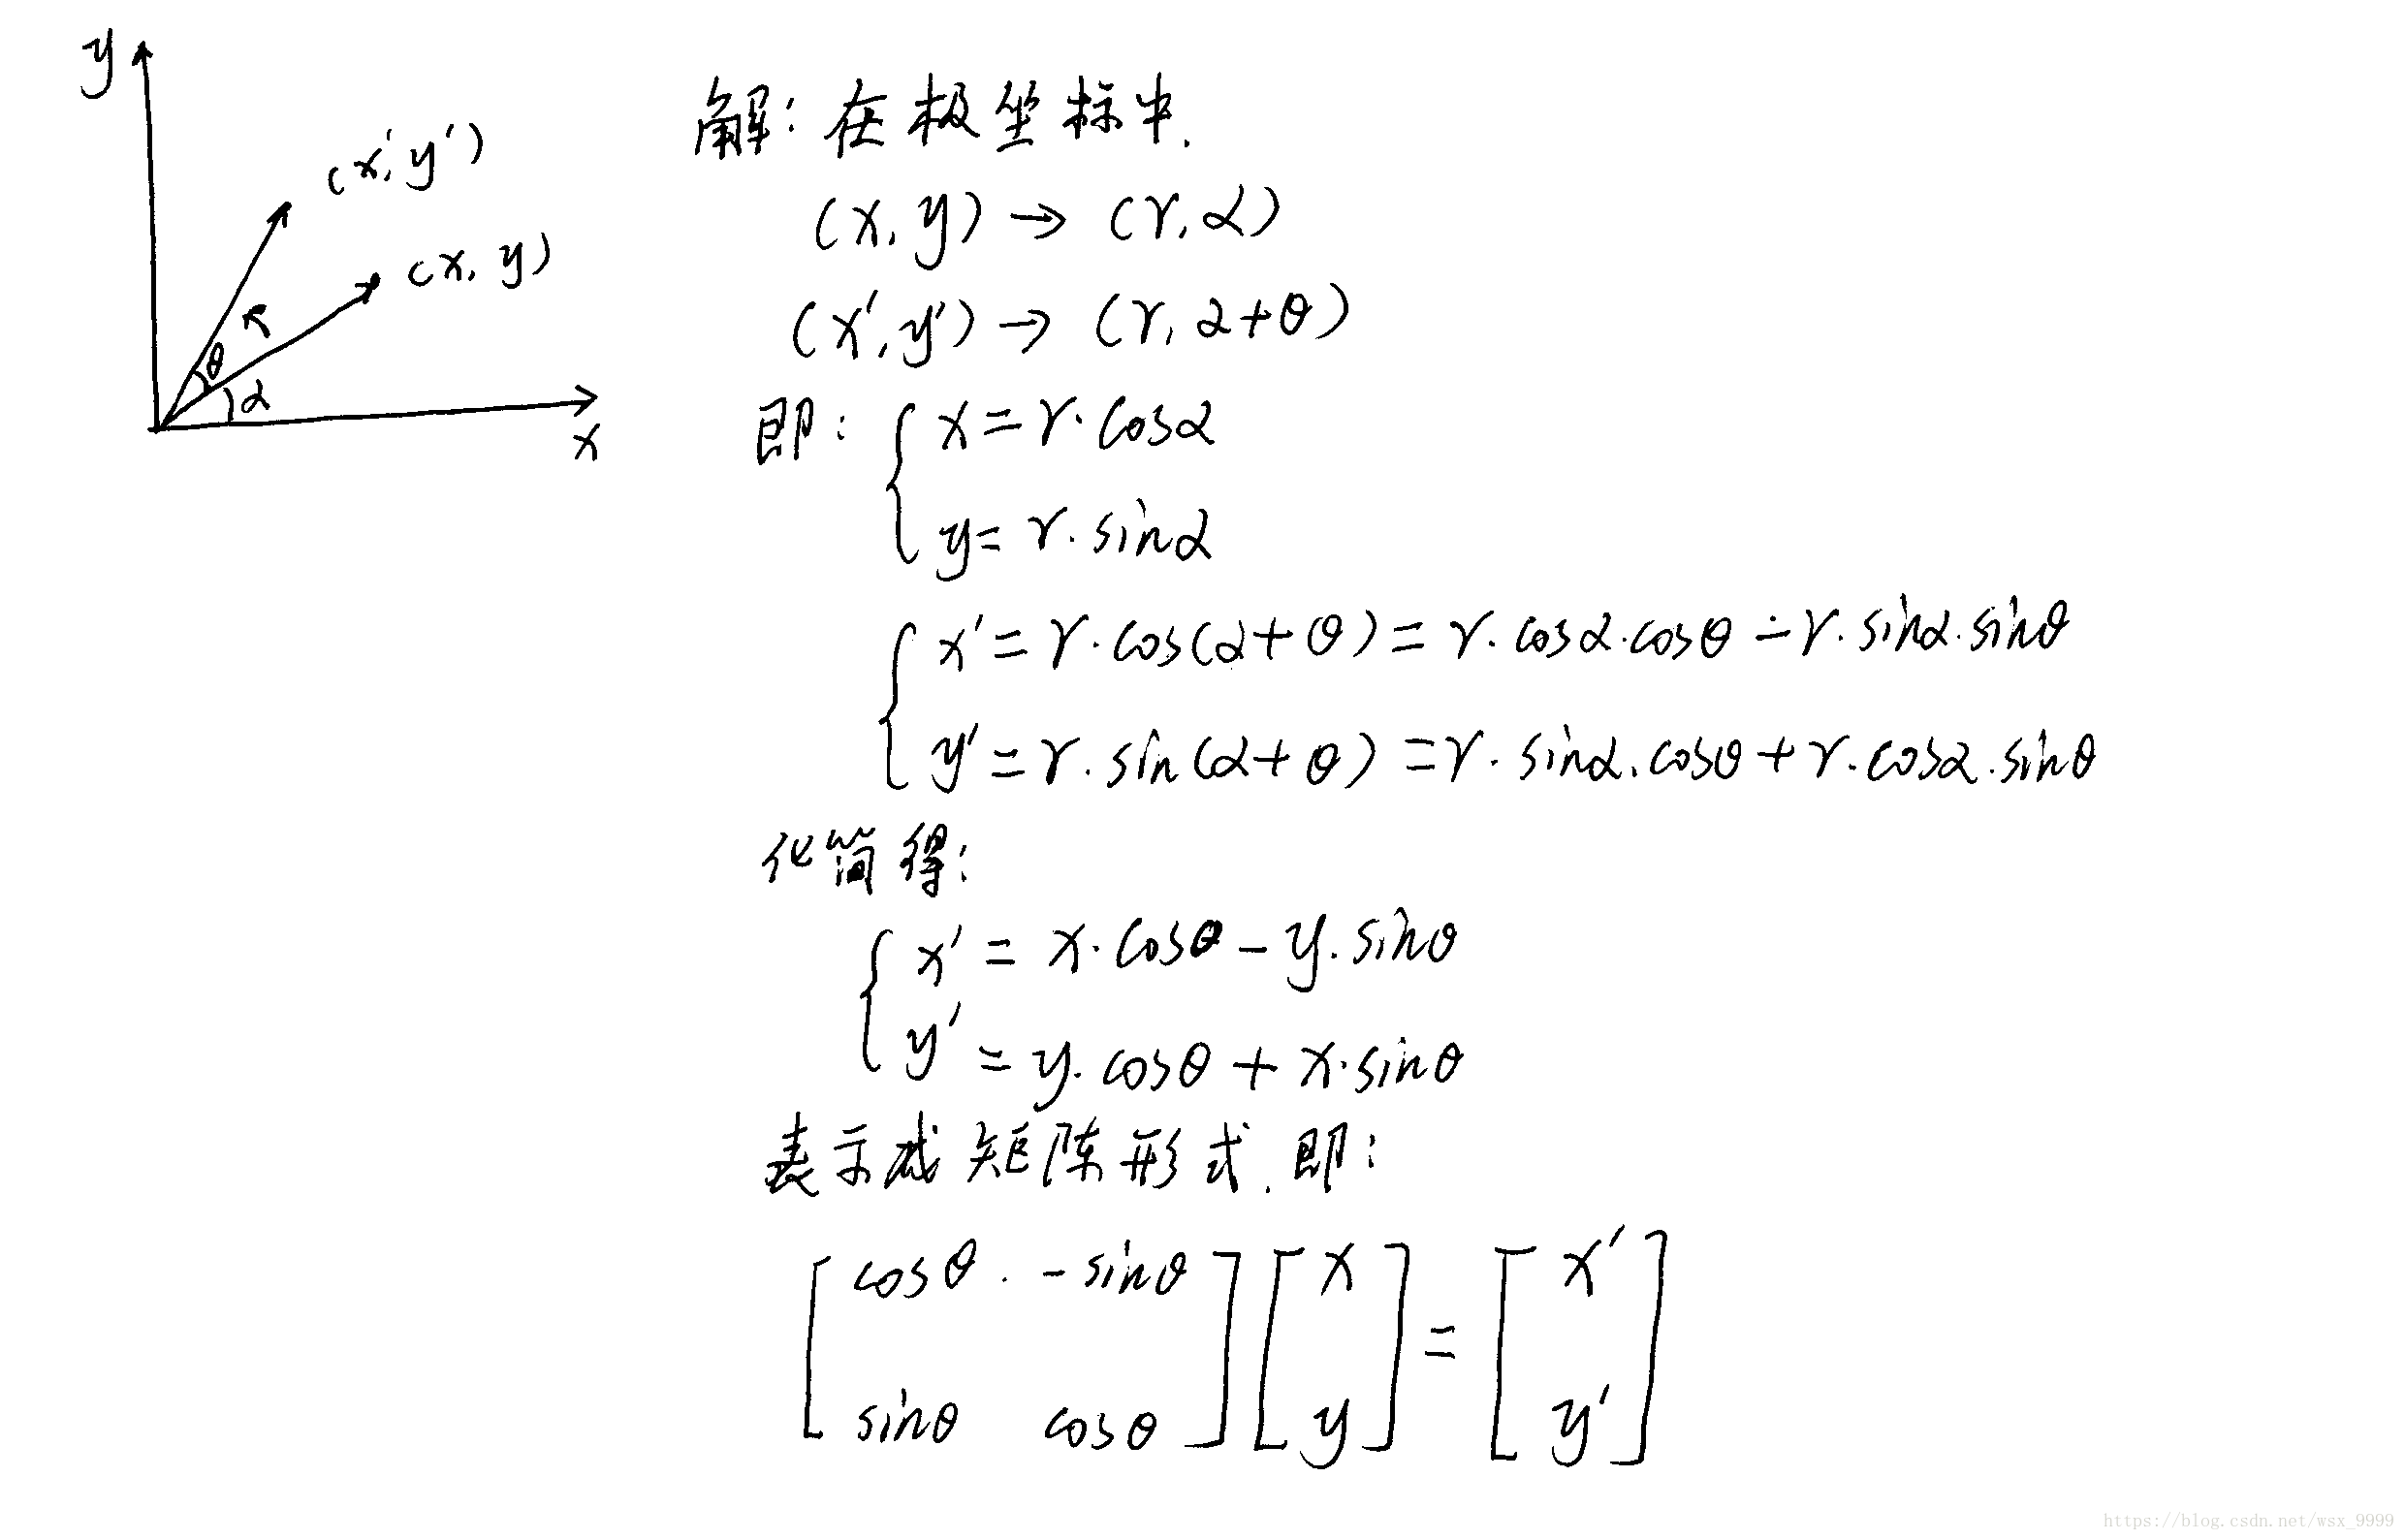 y
(x', y')
(x, y)
θ
α
x
解: 在极坐标中.
(x, y) → (r, α)
(x', y') → (r, α+θ)
即: { x = r·cosα
y = r·sinα
{ x' = r·cos(α+θ) = r·cosα·cosθ - r·sinα·sinθ
y' = r·sin(α+θ) = r·sinα·cosθ + r·cosα·sinθ
化简得:
{ x' = x·cosθ - y·sinθ
y' = y·cosθ + x·sinθ
表示成矩阵形式. 即:
[ cosθ · -sinθ ] [ x ] = [ x' ]
[ sinθ cosθ ] [ y ] [ y' ]
https://blog.csdn.net/wsx_9999